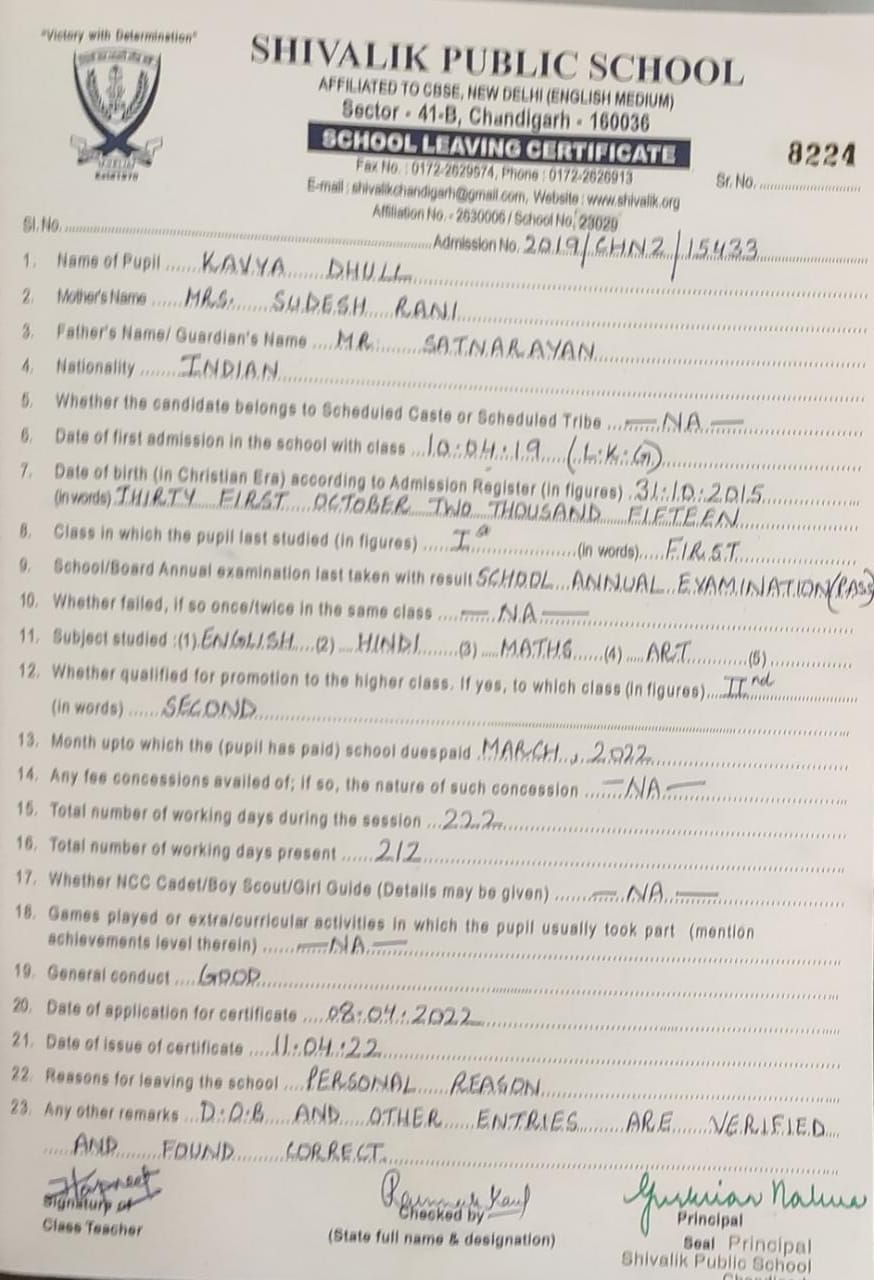 "Victory with Determination"
SHIVALIK PUBLIC SCHOOL
AFFILIATED TO CBSE, NEW DELHI (ENGLISH MEDIUM)
Sector - 41-B, Chandigarh - 160036
SCHOOL LEAVING CERTIFICATE
8224
Fax No. : 0172-2629574, Phone : 0172-2626913
Sr. No. ....................
E-mail : shivalikchandigarh@gmail.com, Website : www.shivalik.org
Affiliation No. - 2630006 / School No. 23029
Sl. No. .................... Admission No. 2019/CHN2/15433
1. Name of Pupil ...... KAVYA DHULL
2. Mother's Name ...... MRS. SUDESH RANI
3. Father's Name/ Guardian's Name .... MR. SATNARAYAN
4. Nationality ........ INDIAN
5. Whether the candidate belongs to Scheduled Caste or Scheduled Tribe ... — NA —
6. Date of first admission in the school with class ... 10:04:19 (L.K.G)
7. Date of birth (in Christian Era) according to Admission Register (in figures) . 31:10:2015
(in words) THIRTY FIRST OCTOBER TWO THOUSAND FIFTEEN
8. Class in which the pupil last studied (in figures) ..... Iª .......... (in words) .... FIRST
9. School/Board Annual examination last taken with result SCHOOL ANNUAL EXAMINATION (PASS)
10. Whether failed, if so once/twice in the same class .... — NA —
11. Subject studied :(1) ENGLISH (2) HINDI (3) MATHS (4) ART (5)
12. Whether qualified for promotion to the higher class. If yes, to which class (in figures) ... IInd
(in words) ...... SECOND
13. Month upto which the (pupil has paid) school duespaid . MARCH, 2022
14. Any fee concessions availed of; if so, the nature of such concession ...... — NA —
15. Total number of working days during the session ... 222
16. Total number of working days present ...... 212
17. Whether NCC Cadet/Boy Scout/Girl Guide (Details may be given) ...... — NA —
18. Games played or extra/curricular activities in which the pupil usually took part (mention
achievements level therein) ...... — NA —
19. General conduct .... GOOD
20. Date of application for certificate .... 08:04:2022
21. Date of issue of certificate .... 11:04:22
22. Reasons for leaving the school .... PERSONAL REASON
23. Any other remarks ... D.O.B AND OTHER ENTRIES ARE VERIFIED
AND FOUND CORRECT
Harpreet
Signature of
Class Teacher
Kaur
Checked by
(State full name & designation)
Principal
Seal Principal
Shivalik Public School